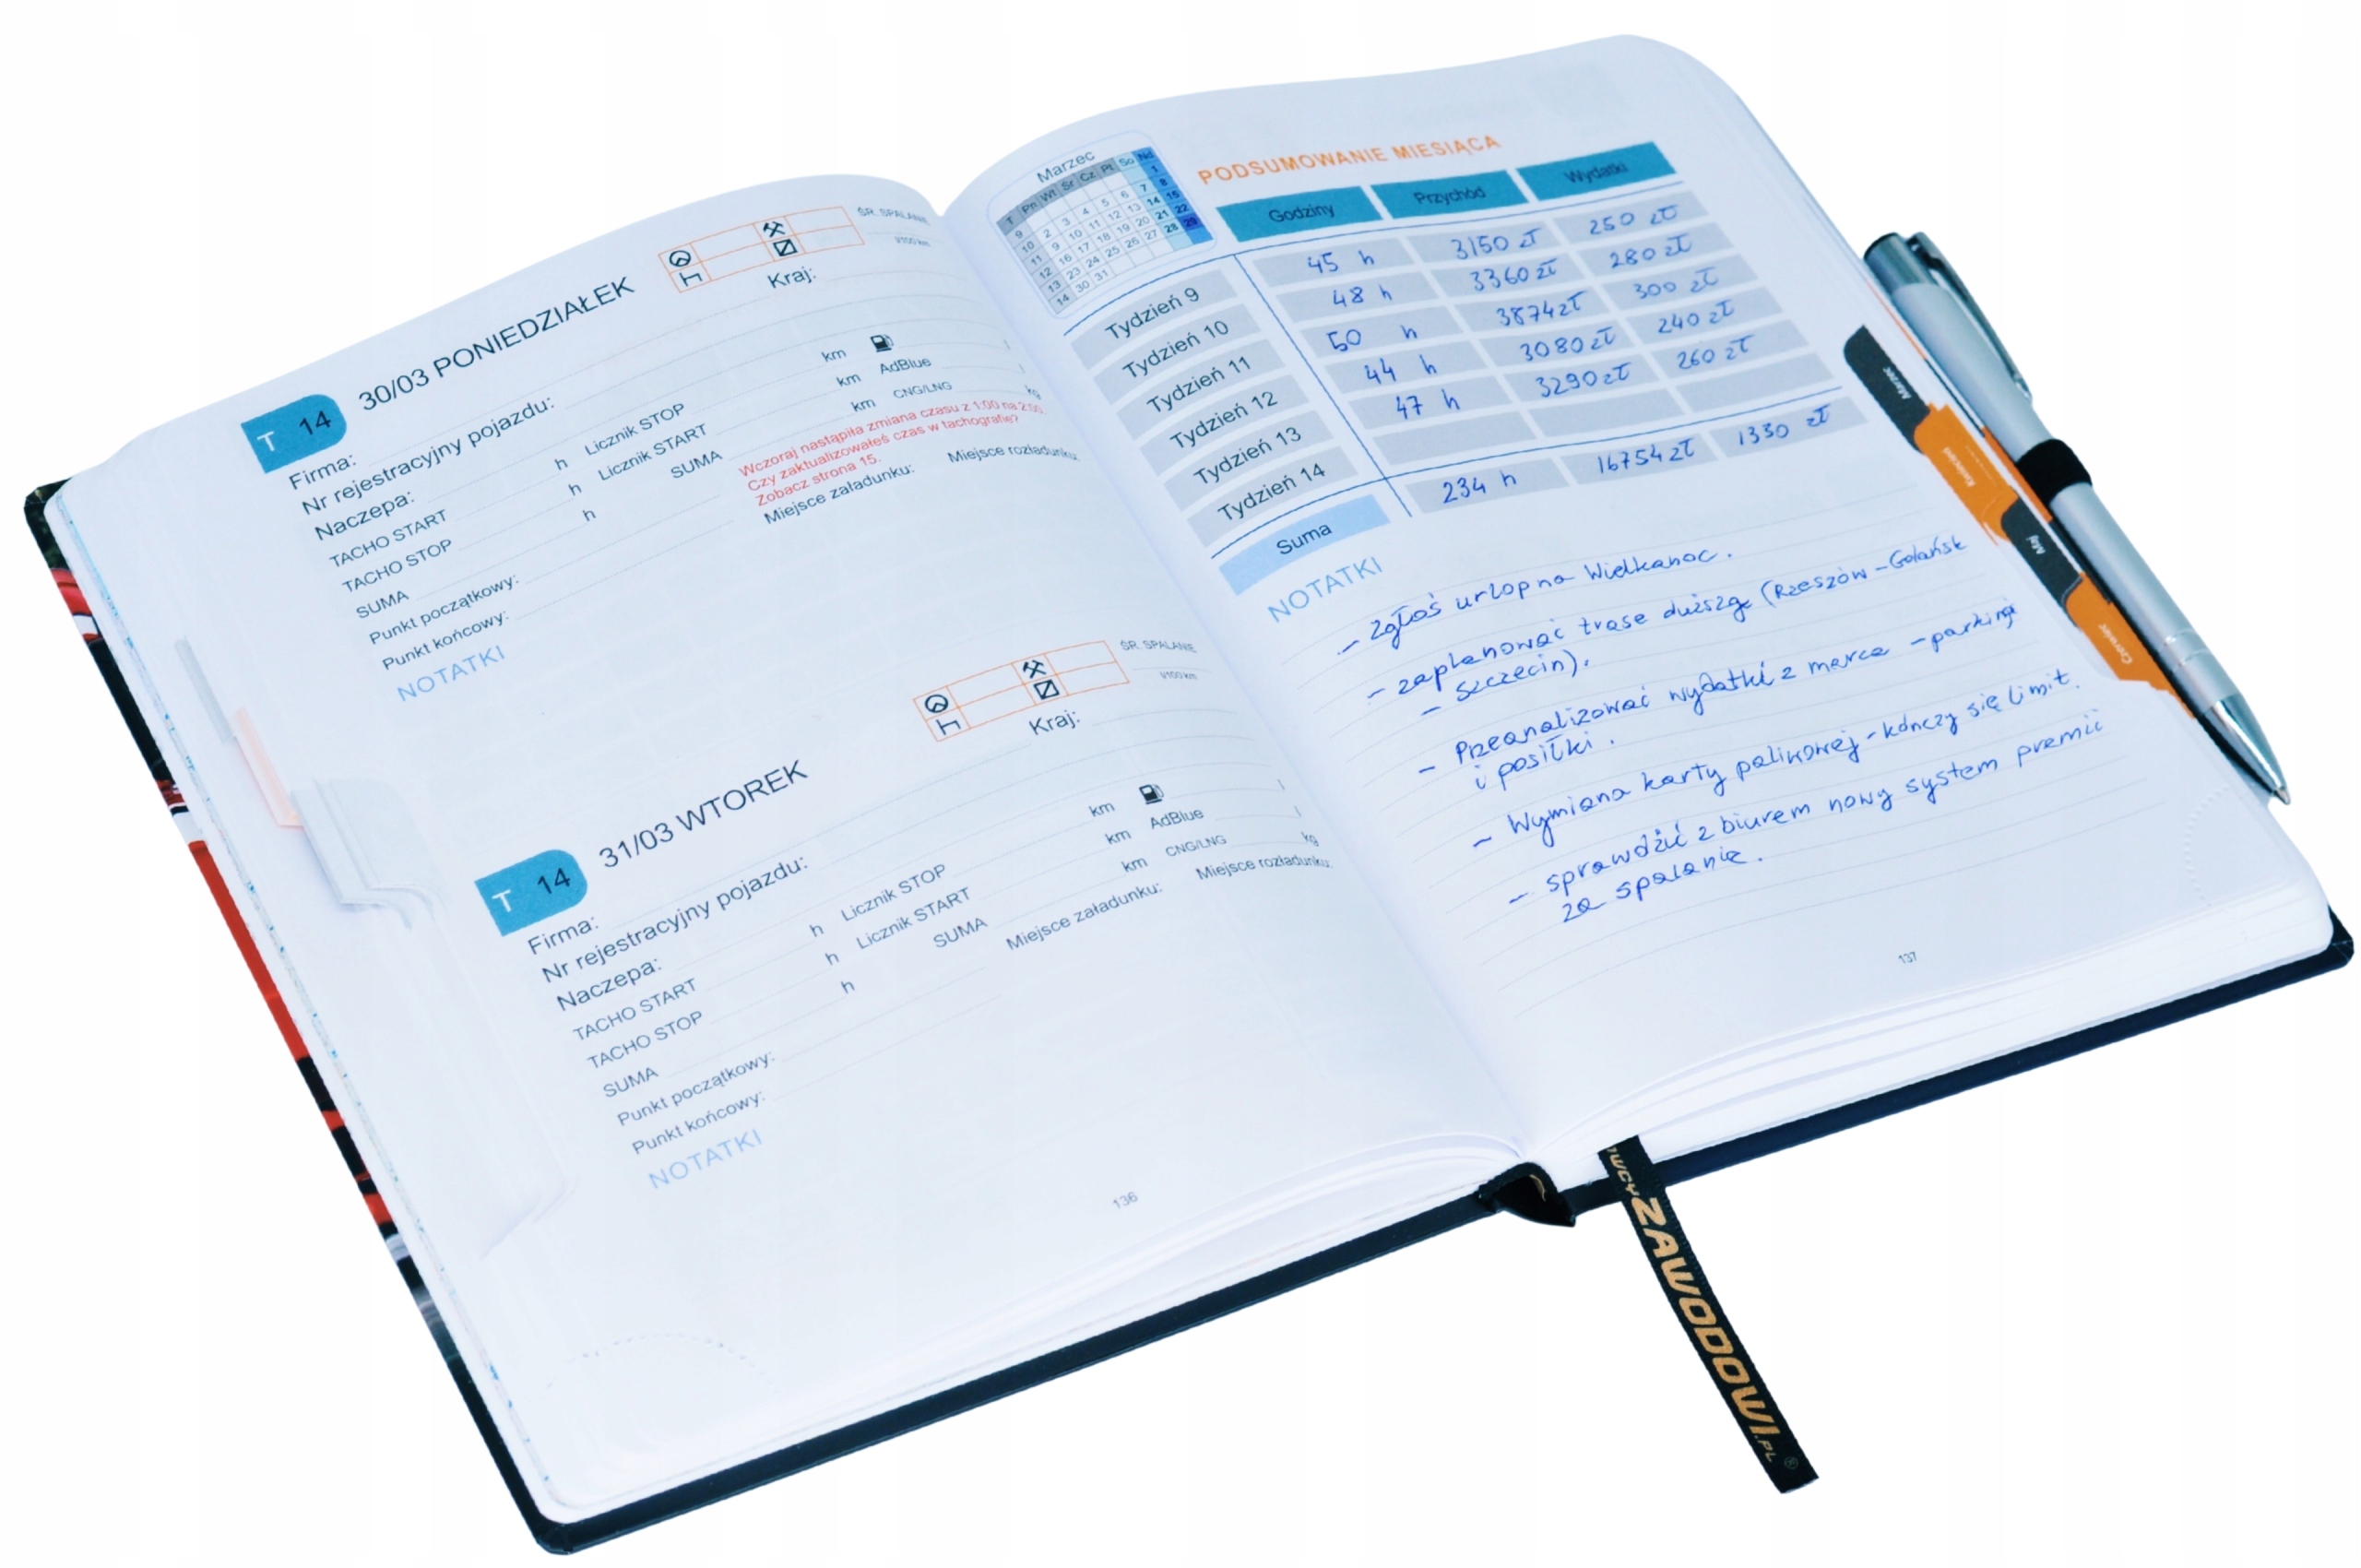 T 14 30/03 PONIEDZIAŁEK
ŚR. SPALANIE
l/100 km
Firma: Kraj:
Nr rejestracyjny pojazdu:
Naczepa:
TACHO START h Licznik STOP km
TACHO STOP h Licznik START km AdBlue l
SUMA h SUMA km CNG/LNG kg
Wczoraj nastąpiła zmiana czasu z 1:00 na 2:00.
Czy zaktualizowałeś czas w tachografie?
Zobacz strona 15.
Punkt początkowy: Miejsce załadunku: Miejsce rozładunku:
Punkt końcowy:
NOTATKI
T 14 31/03 WTOREK
ŚR. SPALANIE
l/100 km
Firma: Kraj:
Nr rejestracyjny pojazdu:
Naczepa:
TACHO START h Licznik STOP km l
TACHO STOP h Licznik START km AdBlue l
SUMA h SUMA km CNG/LNG kg
Punkt początkowy: Miejsce załadunku: Miejsce rozładunku:
Punkt końcowy:
NOTATKI
136
Marzec
T Pn Wt Śr Cz Pt So Nd
9 1
10 2 3 4 5 6 7 8
11 9 10 11 12 13 14 15
12 16 17 18 19 20 21 22
13 23 24 25 26 27 28 29
14 30 31
PODSUMOWANIE MIESIĄCA
Godziny Przychód Wydatki
Tydzień 9 45 h 3150 zł 250 zł
Tydzień 10 48 h 3360 zł 280 zł
Tydzień 11 50 h 3874 zł 300 zł
Tydzień 12 44 h 3080 zł 240 zł
Tydzień 13 47 h 3290 zł 260 zł
Tydzień 14
Suma 234 h 16754 zł 1330 zł
NOTATKI
- Zgłoś urlop na Wielkanoc.
- zaplanować trase dłuższą (Rzeszów - Gdańsk
- Szczecin).
- Przeanalizować wydatki z marca - parkingi
i posiłki.
- Wymiana karty paliwowej - kończy się limit.
- sprawdzić z biurem nowy system premii
za spalanie.
137
Marzec
Kwiecień
Maj
Czerwiec
ZAWODOWI.PL